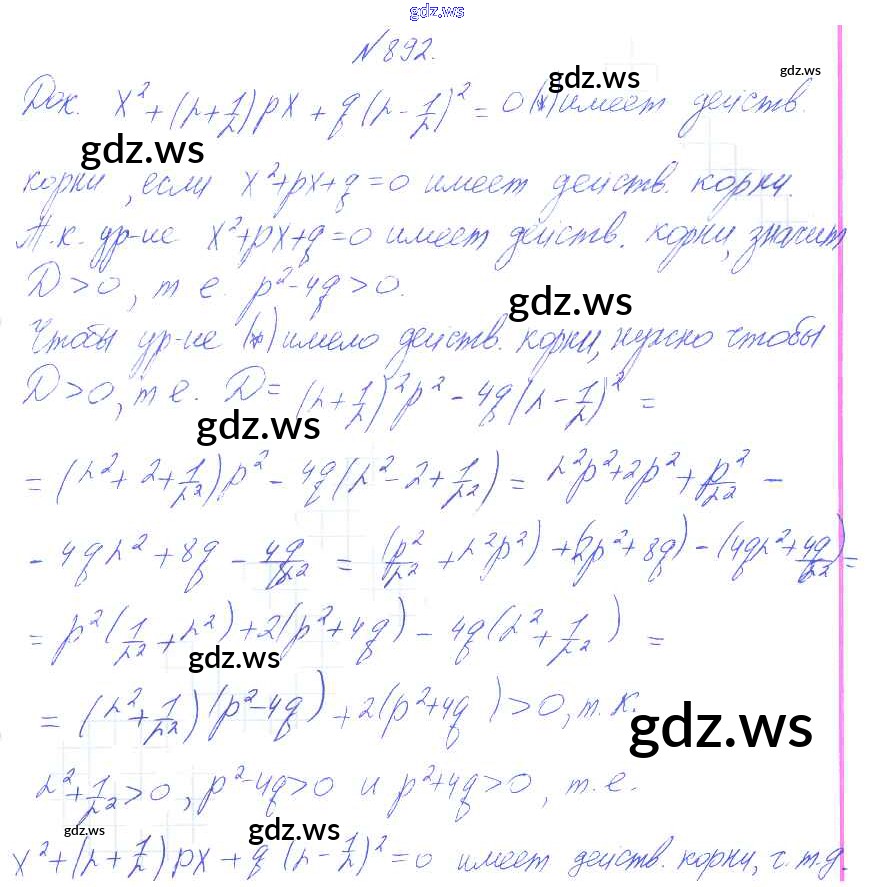 gdz.ws
№892.
gdz.ws gdz.ws
Док. x² + (λ + 1/λ)px + q(λ - 1/λ)² = 0 (*) имеет действ.
gdz.ws
корни, если x² + px + q = 0 имеет действ. корни.
Т.к. ур-ие x² + px + q = 0 имеет действ. корни, значит
D > 0, т е. p² - 4q > 0.
gdz.ws
Чтобы ур-ие (*) имело действ. корни, нужно чтобы
D > 0, т е. D = (λ + 1/λ)²p² - 4q(λ - 1/λ)² =
gdz.ws
= (λ² + 2 + 1/λ²)p² - 4q(λ² - 2 + 1/λ²) = λ²p² + 2p² + p²/λ² -
- 4qλ² + 8q - 4q/λ² = (p²/λ² + λ²p²) + (2p² + 8q) - (4qλ² + 4q/λ²) =
= p²(1/λ² + λ²) + 2(p² + 4q) - 4q(λ² + 1/λ²) =
gdz.ws
= (λ² + 1/λ²)(p² - 4q) + 2(p² + 4q) > 0, т. к.
gdz.ws
λ² + 1/λ² > 0, p² - 4q > 0 и p² + 4q > 0, т. е.
gdz.ws gdz.ws
x² + (λ + 1/λ)px + q(λ - 1/λ)² = 0 имеет действ. корни, ч. т. д.